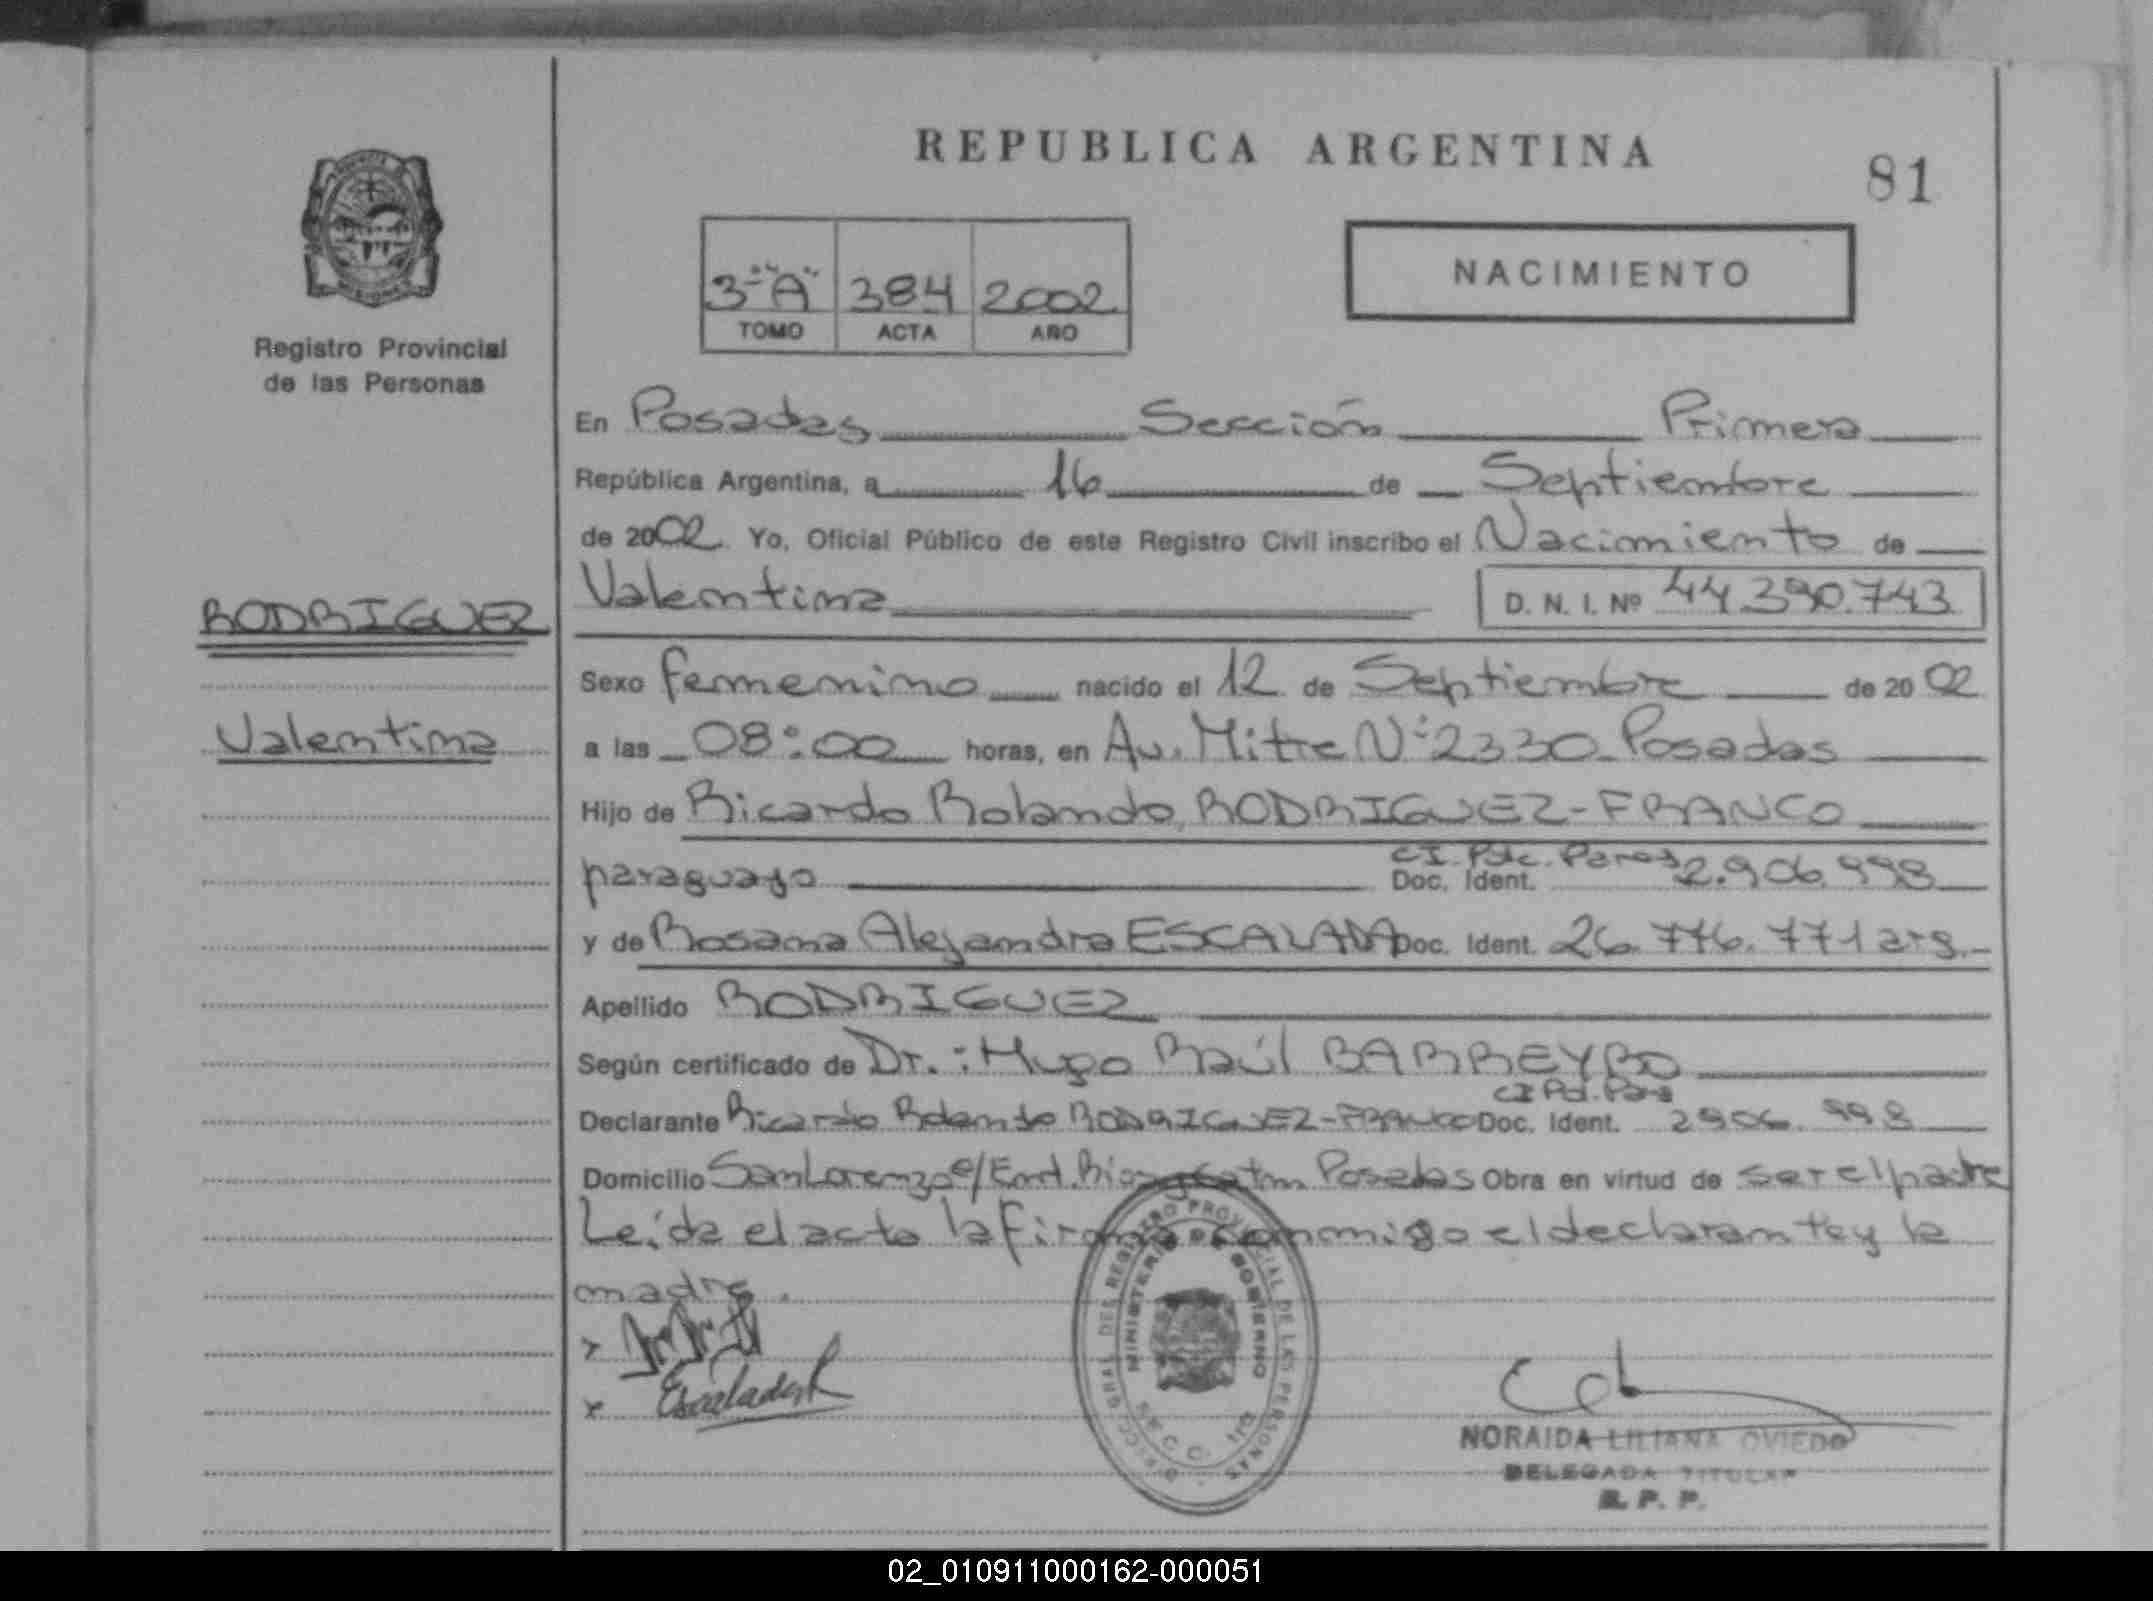 REPUBLICA ARGENTINA
81
3-"A" 384 2002
TOMO ACTA AÑO
NACIMIENTO
Registro Provincial
de las Personas
En Posadas Sección Primera
República Argentina, a 16 de Septiembre
de 2002. Yo, Oficial Público de este Registro Civil inscribo el Nacimiento de
RODRIGUEZ
Valentina D. N. I. Nº 44.390.743
Sexo femenino nacido el 12 de Septiembre de 2002
Valentina
a las 08:00 horas, en Av. Mitre Nº 2330 Posadas
Hijo de Ricardo Rolando, RODRIGUEZ-FRANCO
paraguayo CI. Pol. Parag Doc. Ident. 2.906.998
y de Rosana Alejandra ESCALADA Doc. Ident. 26.776.771 arg.
Apellido RODRIGUEZ
Según certificado de Dr.: Hugo Raúl BARREYRO
Declarante Ricardo Rolando RODRIGUEZ-FRANCO CI Pol. Para Doc. Ident. 2906.998
Domicilio San Lorenzo e/ Posadas Obra en virtud de ser el padre
Leída el acta la firma conmigo el declarante y la
madre.
Escalada R
DIRECC. GRAL. DEL REGISTRO PROVINCIAL DE LAS PERSONAS
MINISTERIO DE GOBIERNO
SECC. 1ra
NORAIDA LILIANA OVIEDO
DELEGADA TITULAR
R. P. P.
02_010911000162-000051